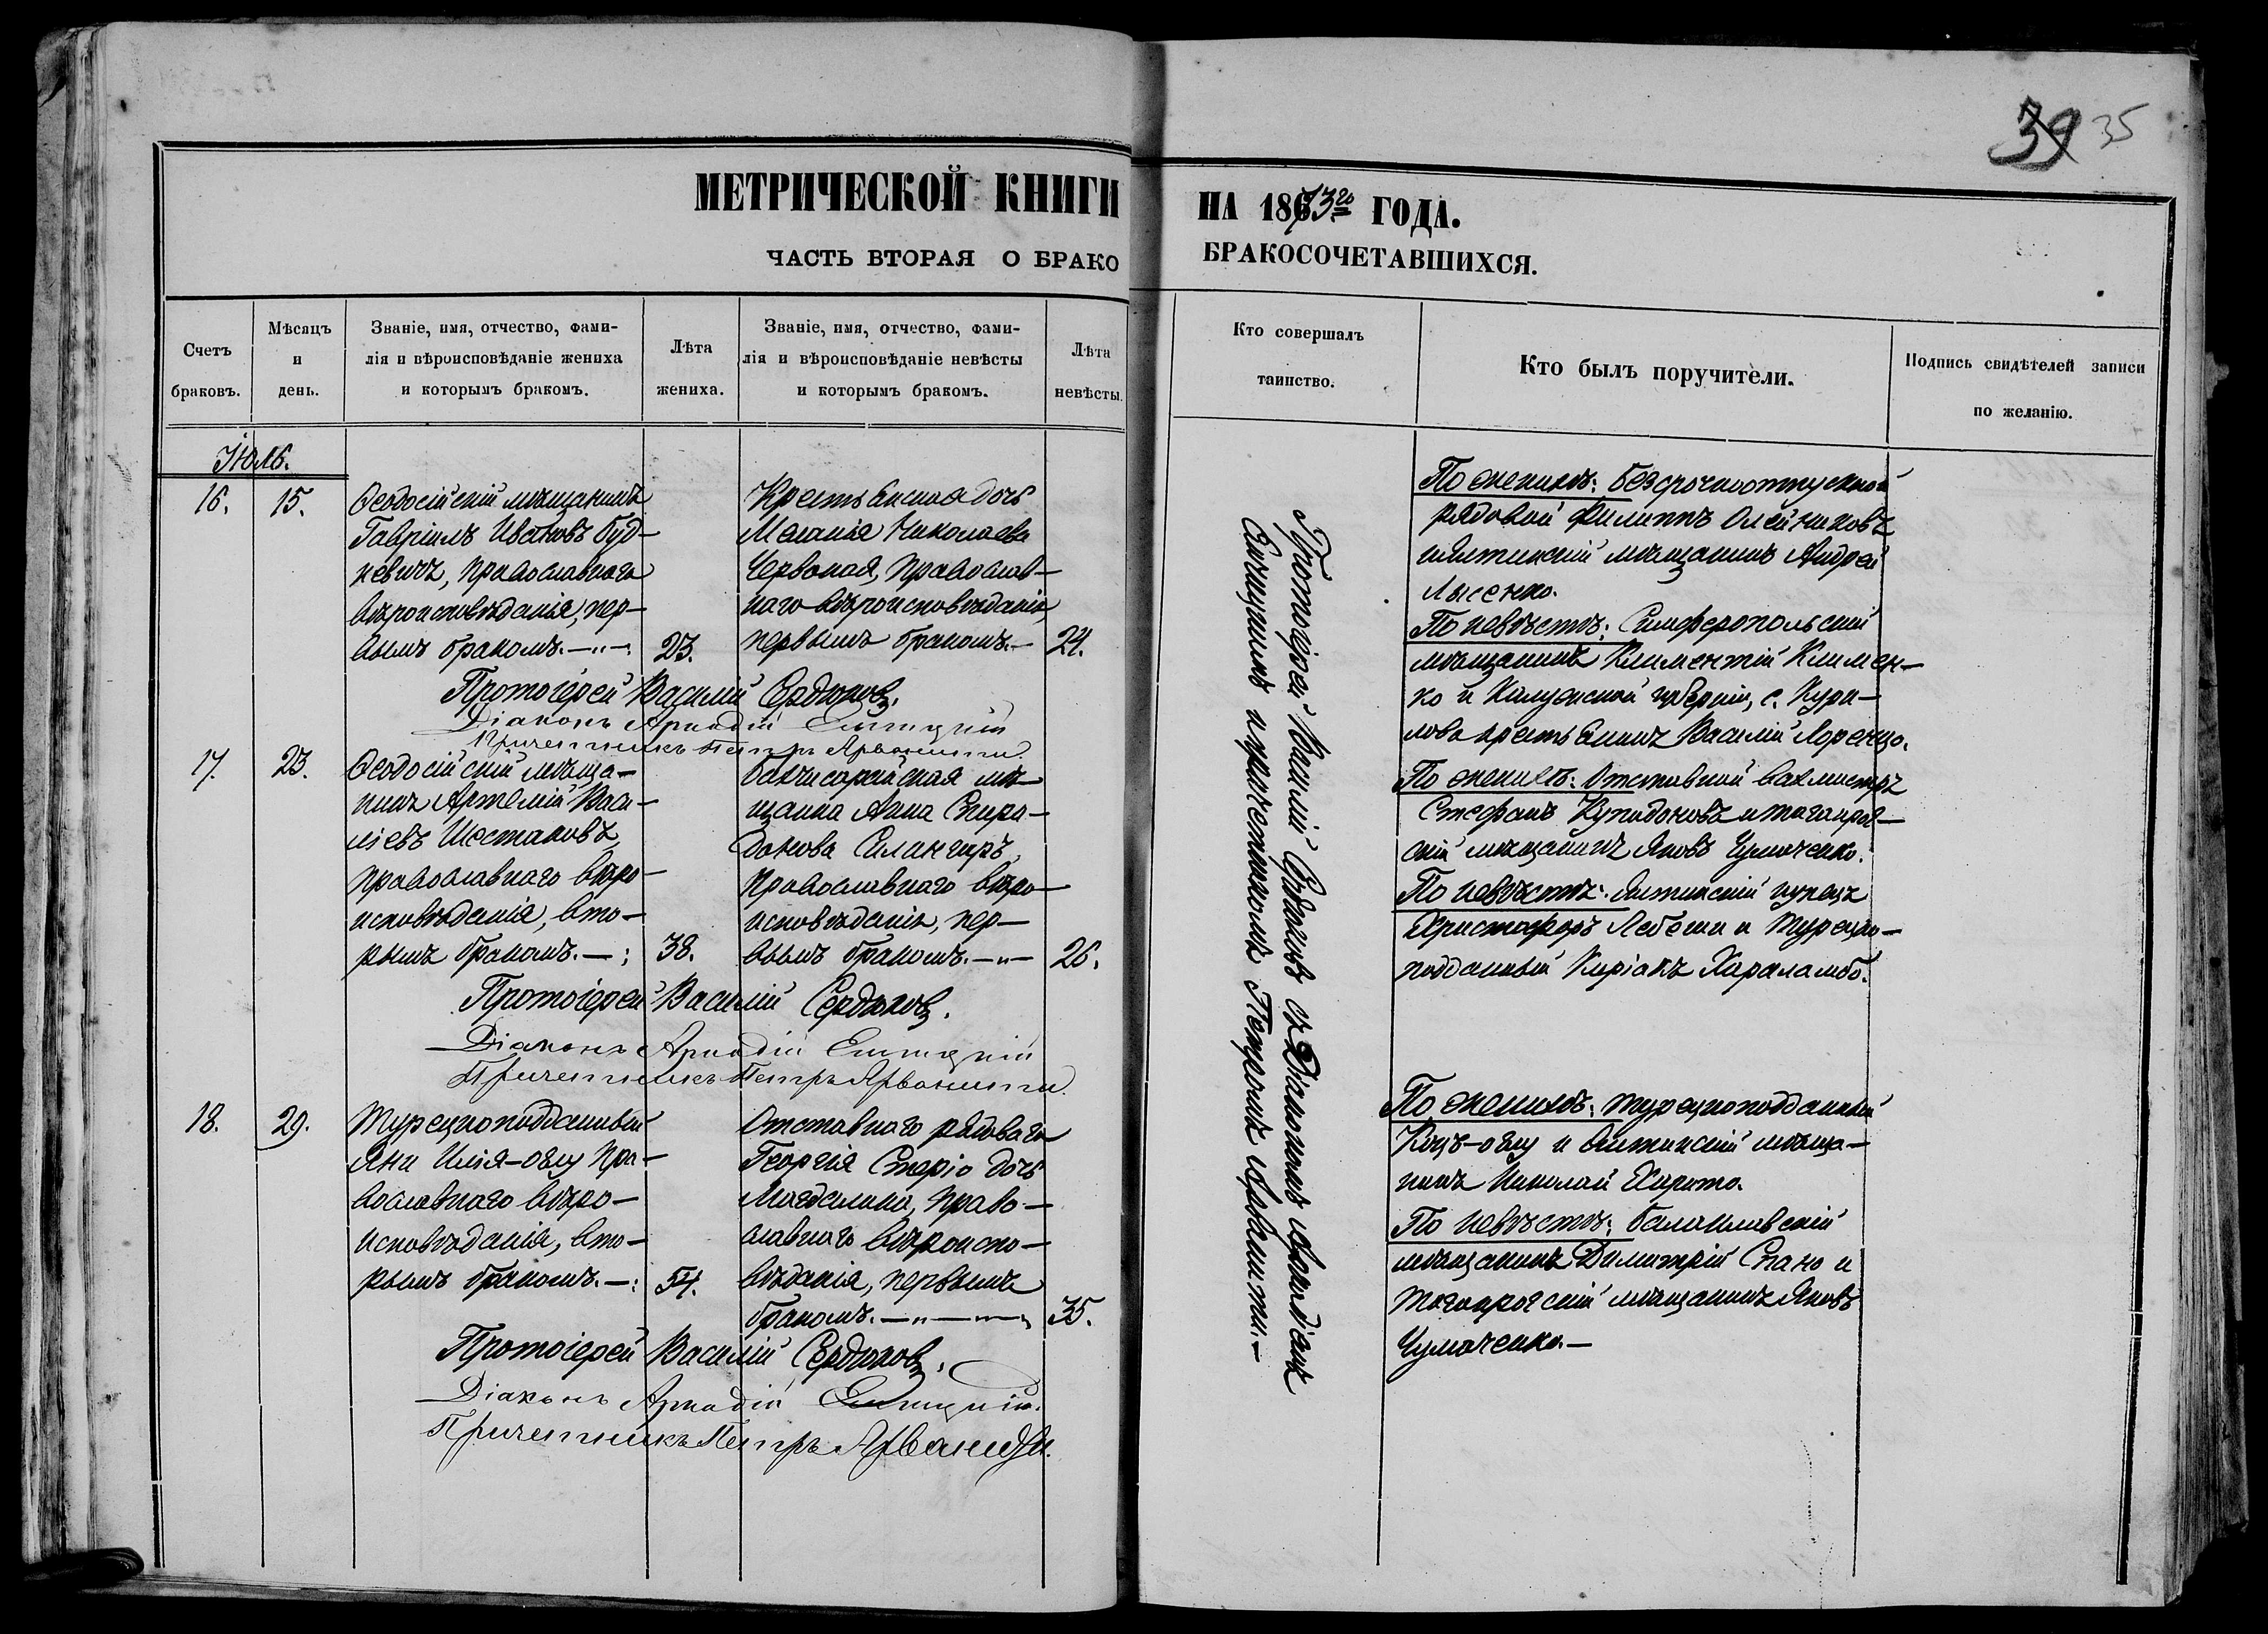 39 35
МЕТРИЧЕСКОЙ КНИГИ НА 1873го ГОДА.
ЧАСТЬ ВТОРАЯ О БРАКО БРАКОСОЧЕТАВШИХСЯ.
Счетъ
браковъ.
Мѣсяцъ
и
день.
Званіе, имя, отчество, фами-
лія и вѣроисповѣданіе жениха
и которымъ бракомъ.
Лѣта
жениха.
Званіе, имя, отчество, фами-
лія и вѣроисповѣданіе невѣсты
и которымъ бракомъ.
Лѣта
невѣсты.
Кто совершалъ
таинство.
Кто былъ поручители.
Подпись свидѣтелей записи
по желанію.
Іюль.
16.
15.
Ѳеодосійскій мѣщанинъ
Гавріилъ Ивановъ Буд-
невичъ, православнаго
вѣроисповѣданія, пер-
вымъ бракомъ.
23.
Крестьянская дочь
Меланія Николаева
Червоная, православ-
наго вѣроисповѣданія,
первымъ бракомъ.
24.
По женихѣ: безсрочноотпускной
рядовой Филиппъ Олейниковъ
и Ялтинскій мѣщанинъ Андрей
Лысенко.
По невѣстѣ: Симферопольскій
мѣщанинъ Климентій Климен-
ко и Калужской губерніи, с. Кури-
лова крестьянинъ Василій Лоренцо.
Протоіерей Василій Сердюковъ.
Діаконъ Аркадій
Причетникъ Петръ Арванити
17.
23.
Ѳеодосійскій мѣща-
нинъ Артемій Васи-
ліевъ Шестаковъ,
православнаго вѣро-
исповѣданія, вто-
рымъ бракомъ.
38.
Бахчисарайская мѣ-
щанка Анна Спири-
донова Силангиръ,
православнаго вѣро-
исповѣданія, пер-
вымъ бракомъ.
26.
По женихѣ: отставной вахмистръ
Стефанъ Купидоновъ и таганрог-
скій мѣщанинъ Яковъ Чумаченко.
По невѣстѣ: Ялтинскій купецъ
Христофоръ Лебеши и Турецко-
подданный Киріакъ Хараламбо.
Протоіерей Василій Сердюковъ.
Діаконъ Аркадій
Причетникъ Петръ Арванити
18.
29.
Турецкоподданный
Яни Илія-оглу пра-
вославнаго вѣро-
исповѣданія, вто-
рымъ бракомъ.
54.
Отставнаго рядоваго
Георгія Стеріо дочь
Магдалина, право-
славнаго вѣроиспо-
вѣданія, первымъ
бракомъ.
35.
По женихѣ: турецкоподданный
Коцъ-оглу и Ялтинскій мѣща-
нинъ Николай Харито.
По невѣстѣ: Балаклавскій
мѣщанинъ Димитрій Спано и
таганрогскій мѣщанинъ Яковъ
Чумаченко.
Протоіерей Василій Сердюковъ.
Діаконъ Аркадій
Причетникъ Петръ Арваниди.
Протоіерей Василій Сердюковъ съ Діакономъ Аркадіемъ
и причетникомъ Петромъ Арванити.